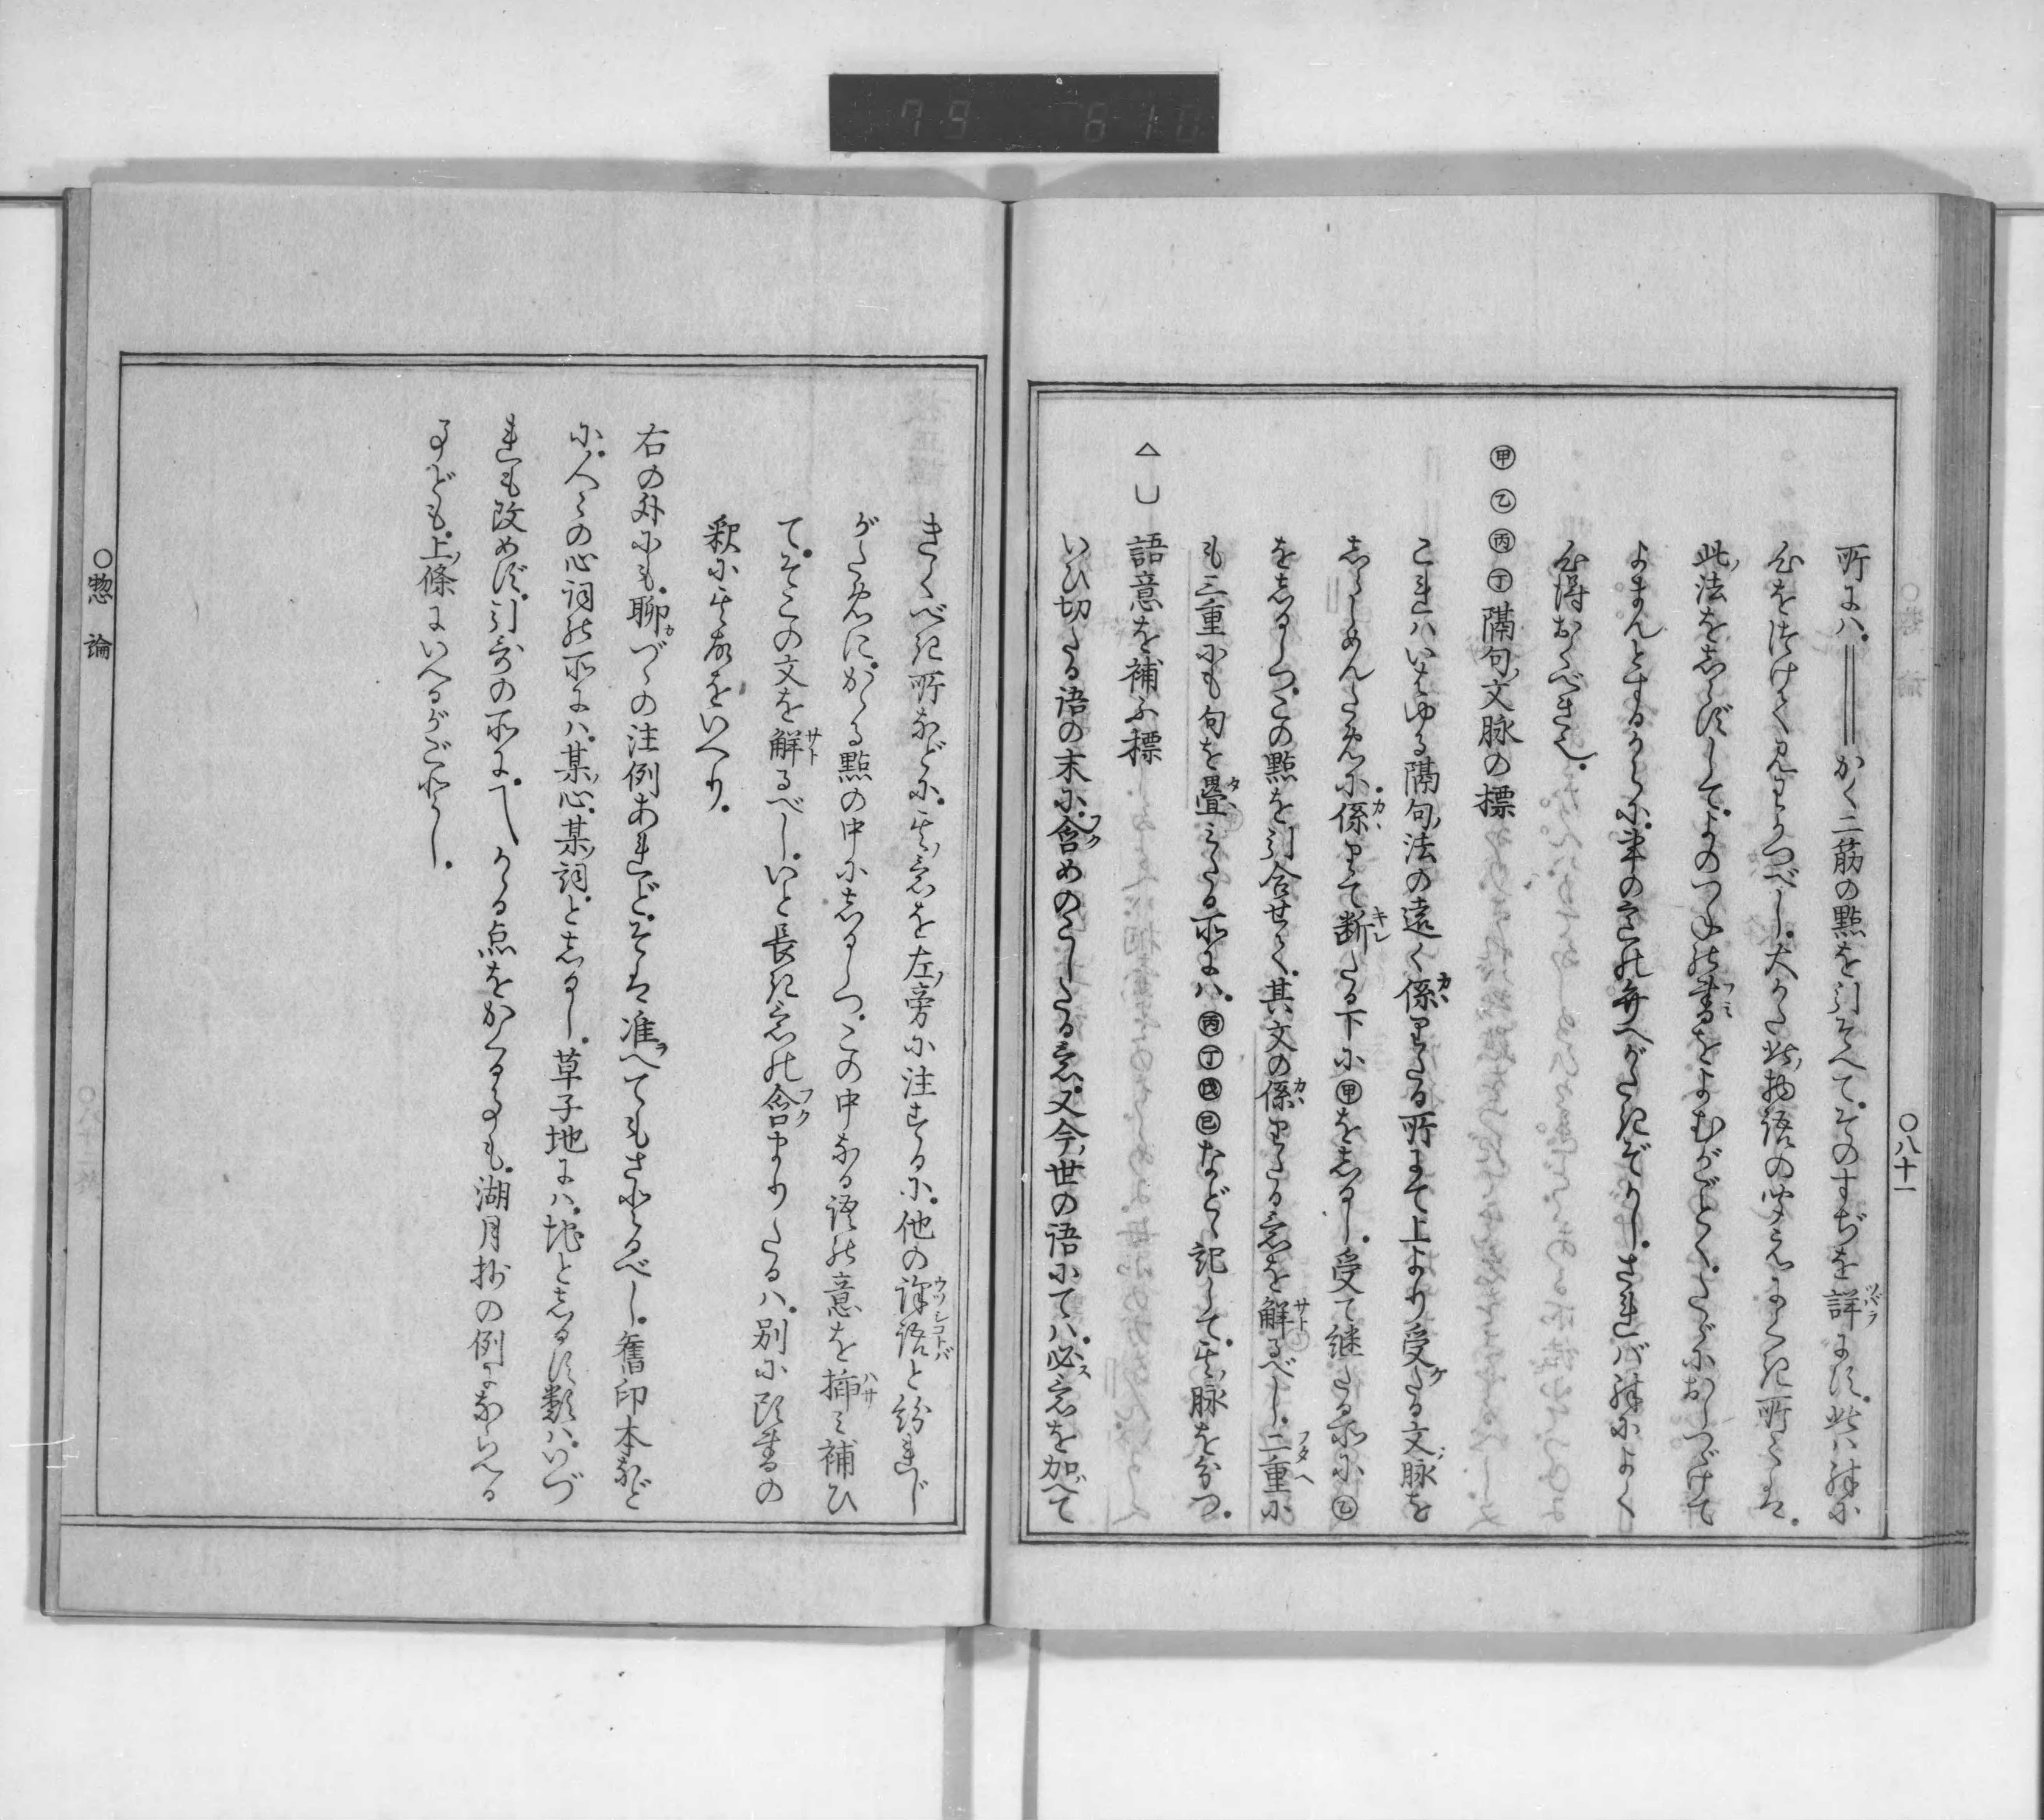 〇八十一
所にハ。║かく二筋の點を引そへて。そのすぢを詳にす。此ハ殊に
心をつけて見わくべし。大かた此物語の聞えにくき所〻は。
此法をしらずして。よのつねの書をよむがごとく。たゞにおしつゞけて
よまんとするからに。事の意の弁へがたきぞかし。されバ殊によく
心得おくべき也。
㊙甲 乙 丙 丁 隔句文脉の標
これハいはゆる隔句法の遠く係りたる所にて上より受たる文脉を
しらしめんために。係りて断たる下に甲をしるし。受て継たる所に乙
をしるしつ。この點を引合せて。其文の係りたる意を解るべし。二重に
も三重にも句を畳みたる所にハ。丙丁戊己などゝ記して。其脉を分つ。
△ ︺ 語意を補ふ標
いひ切たる語の末に。含めのこしたる意。又今世の語にてハ。必意を加べて
きくべき所などに。其意を左旁に注するに。他の譯語と紛れじ
がために。かゝる點の中にしるしつ。この中なる語の意を挿み補ひ
て。そこの文を解るべし。いと長き意の含まりたるハ。別に頭書の
釈に其故をいへり。
右の外にも。聊づゝの注例あれど。そは准へてもさとるべし。舊印本など
に。人〻の心詞の所にハ。某心。某詞。としるし。草子地にハ。地としるす類ハ。いづ
れも改めず。引哥の所に。〽かゝる点をかくる事も。湖月抄の例にならへる
事ども。上條にいへるがごとし。
〇惣論